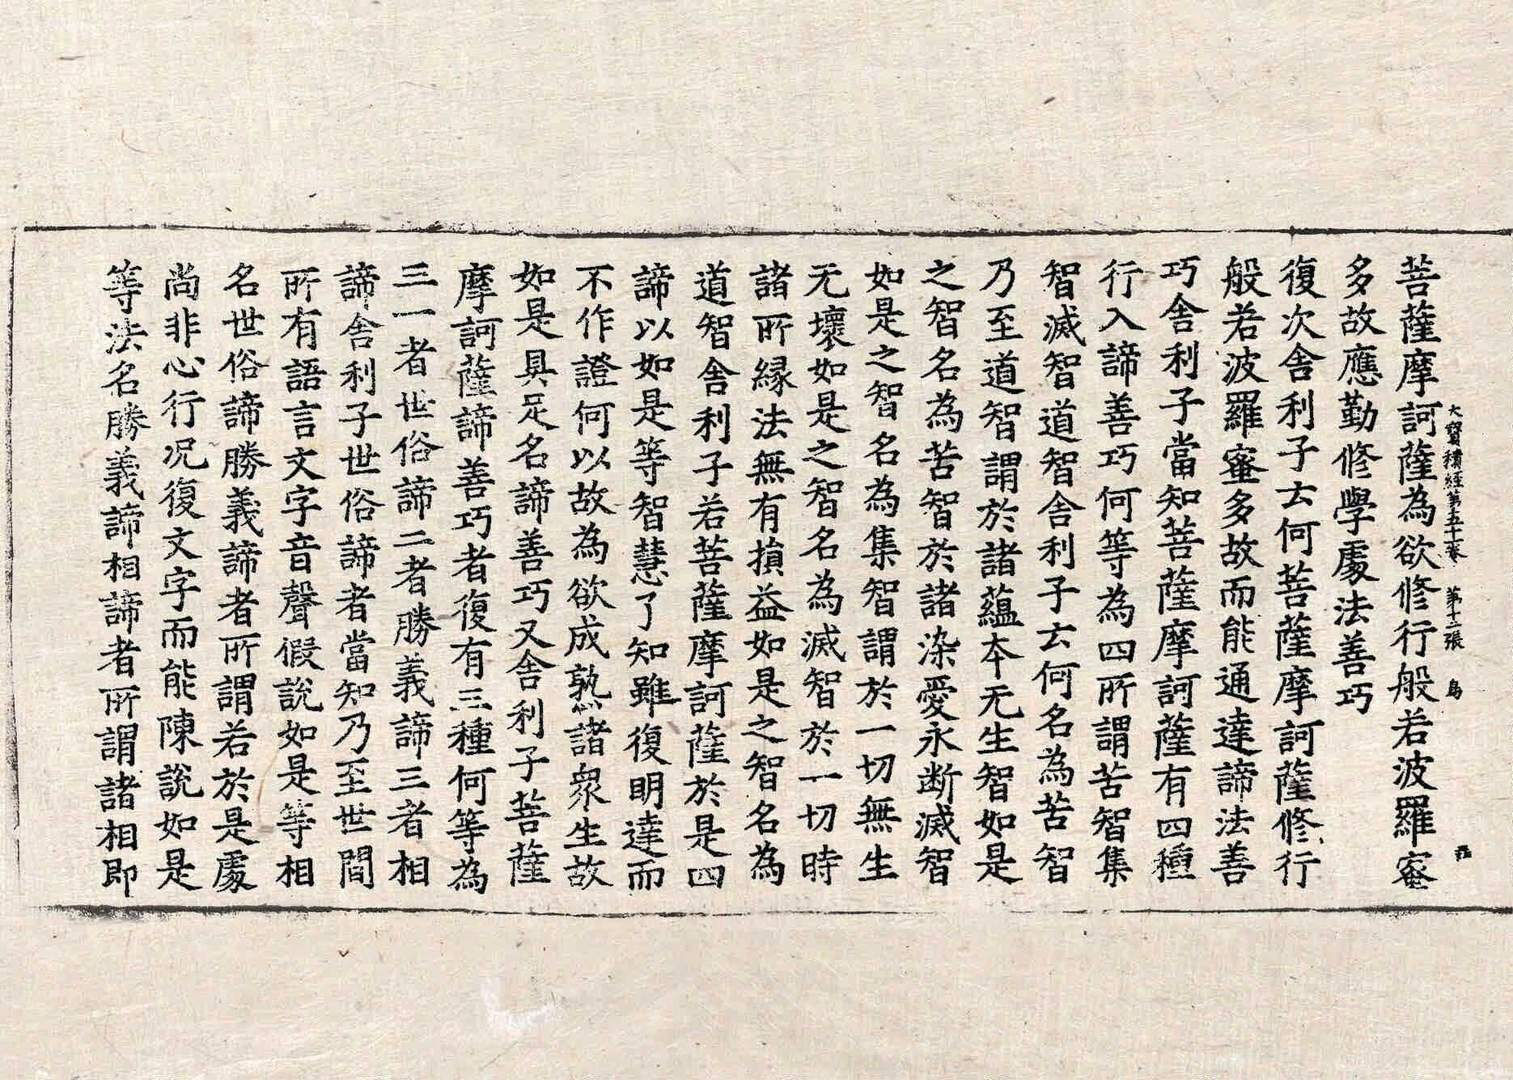 大寶積經第五十一卷 第十二張 鳥
菩薩摩訶薩為欲修行般若波羅蜜
多故應勤修學處法善巧
復次舍利子云何菩薩摩訶薩修行
般若波羅蜜多故而能通達諦法善
巧舍利子當知菩薩摩訶薩有四種
行入諦善巧何等為四所謂苦智集
智滅智道智舍利子云何名為苦智
乃至道智謂於諸蘊本无生智如是
之智名為苦智於諸染愛永断滅智
如是之智名為集智謂於一切無生
无壞如是之智名為滅智於一切時
諸所緣法無有損益如是之智名為
道智舍利子若菩薩摩訶薩於是四
諦以如是等智慧了知雖復明達而
不作證何以故為欲成熟諸眾生故
如是具足名諦善巧又舍利子菩薩
摩訶薩諦善巧者復有三種何等為
三一者世俗諦二者勝義諦三者相
諦舍利子世俗諦者當知乃至世間
所有語言文字音聲假說如是等相
名世俗諦勝義諦者所謂若於是處
尚非心行况復文字而能陳說如是
等法名勝義諦相諦者所謂諸相即